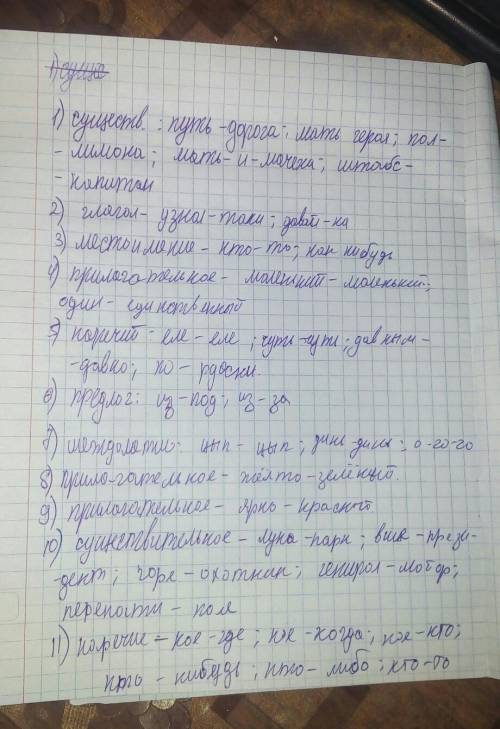 1) существ.: путь-дорога; мать героя; пол-
- лимона; мать-и-мачеха; штабс-
- капитан
2) глагол - узнал-таки; давай-ка
3) местоимение - кто-то; как нибудь
4) прилагательное - маленький-маленький;
один - единственный
5) наречий - еле-еле; чуть-чуть; давным-
-давно; по-
6) предлог: из-под; из-за
7) междолати: цып-цып; динь-динь; о-го-го
8) прилогательное - жёлто-зелёный.
9) прилогательное - ярко-красной
10) существительное - луна-парк; вице-прези-
-дент; горе-охотник; генирал-мойор;
перекати-поле
11) наречие - кое-где; кое-когда; кое-кто;
кто-нибудь; кто-либо; кто-то